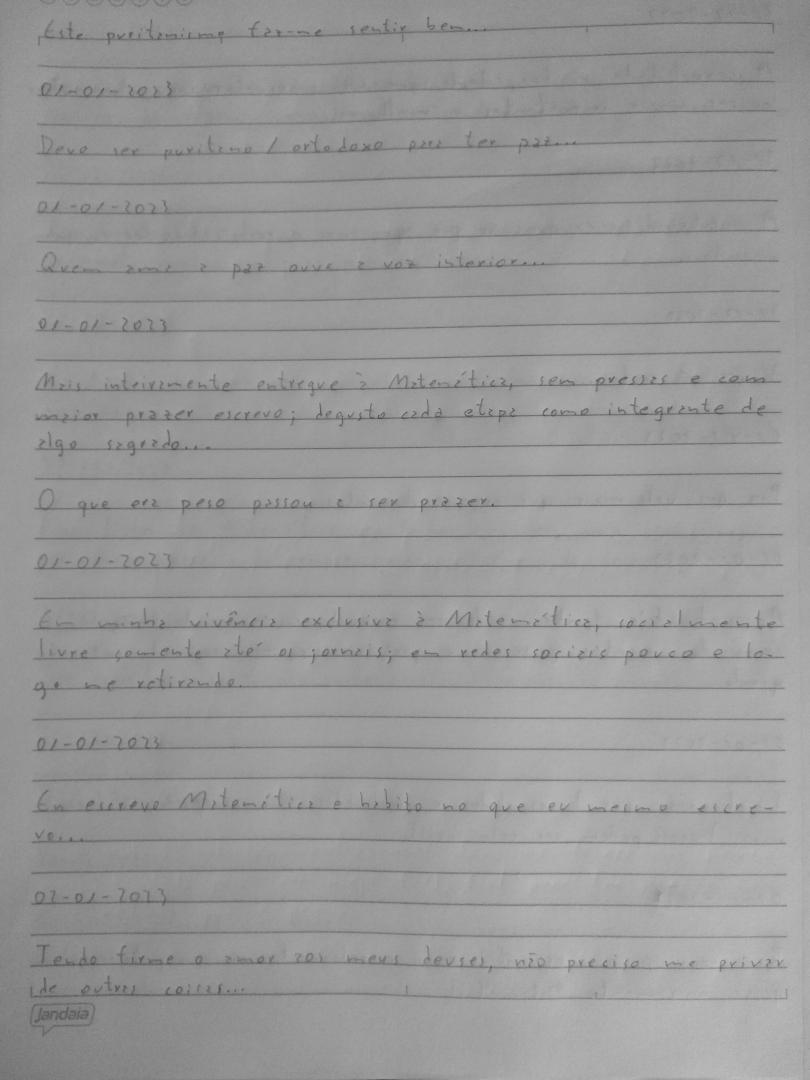 Este puritanismo faz-me sentir bem...
01-01-2023
Devo ser puritano / ortodoxo para ter paz...
01-01-2023
Quem ama a paz ouve a voz interior...
01-01-2023
Mais inteiramente entregue à Matemática, sem pressas e com
maior prazer escrevo; degusto cada etapa como integrante de
algo sagrado...
O que era peso passou a ser prazer.
01-01-2023
Em minha vivência exclusiva à Matemática, socialmente
livre somente até os jornais; em redes sociais pouco e lo-
go me retirando.
01-01-2023
Eu escrevo Matemática e habito no que eu mesmo escre-
vo...
02-01-2023
Tendo firme o amor aos meus deuses, não preciso me privar
de outras coisas...
Jandaia